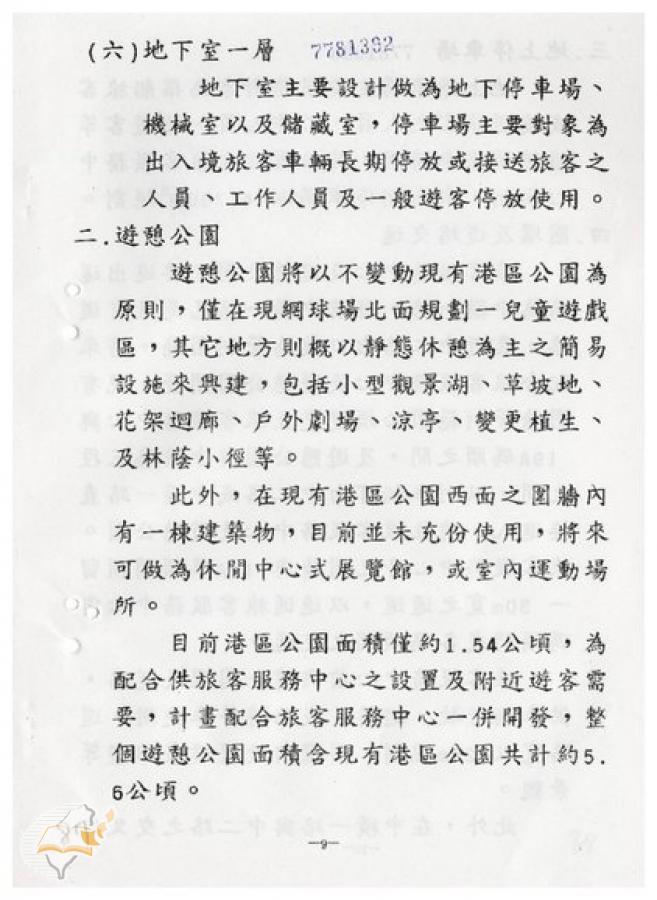 (六)地下室一層 7781392
地下室主要設計做為地下停車場、
機械室以及儲藏室，停車場主要對象為
出入境旅客車輛長期停放或接送旅客之
人員、工作人員及一般遊客停放使用。
二.遊憩公園
遊憩公園將以不變動現有港區公園為
原則，僅在現網球場北面規劃一兒童遊戲
區，其它地方則概以靜態休憩為主之簡易
設施來興建，包括小型觀景湖、草坡地、
花架迴廊、戶外劇場、涼亭、變更植生、
及林蔭小徑等。
此外，在現有港區公園西面之圍牆內
有一棟建築物，目前並未充份使用，將來
可做為休閒中心式展覽館，或室內運動場
所。
目前港區公園面積僅約1.54公頃，為
配合供旅客服務中心之設置及附近遊客需
要，計畫配合旅客服務中心一併開發，整
個遊憩公園面積含現有港區公園共計約5.
6公頃。
—9—